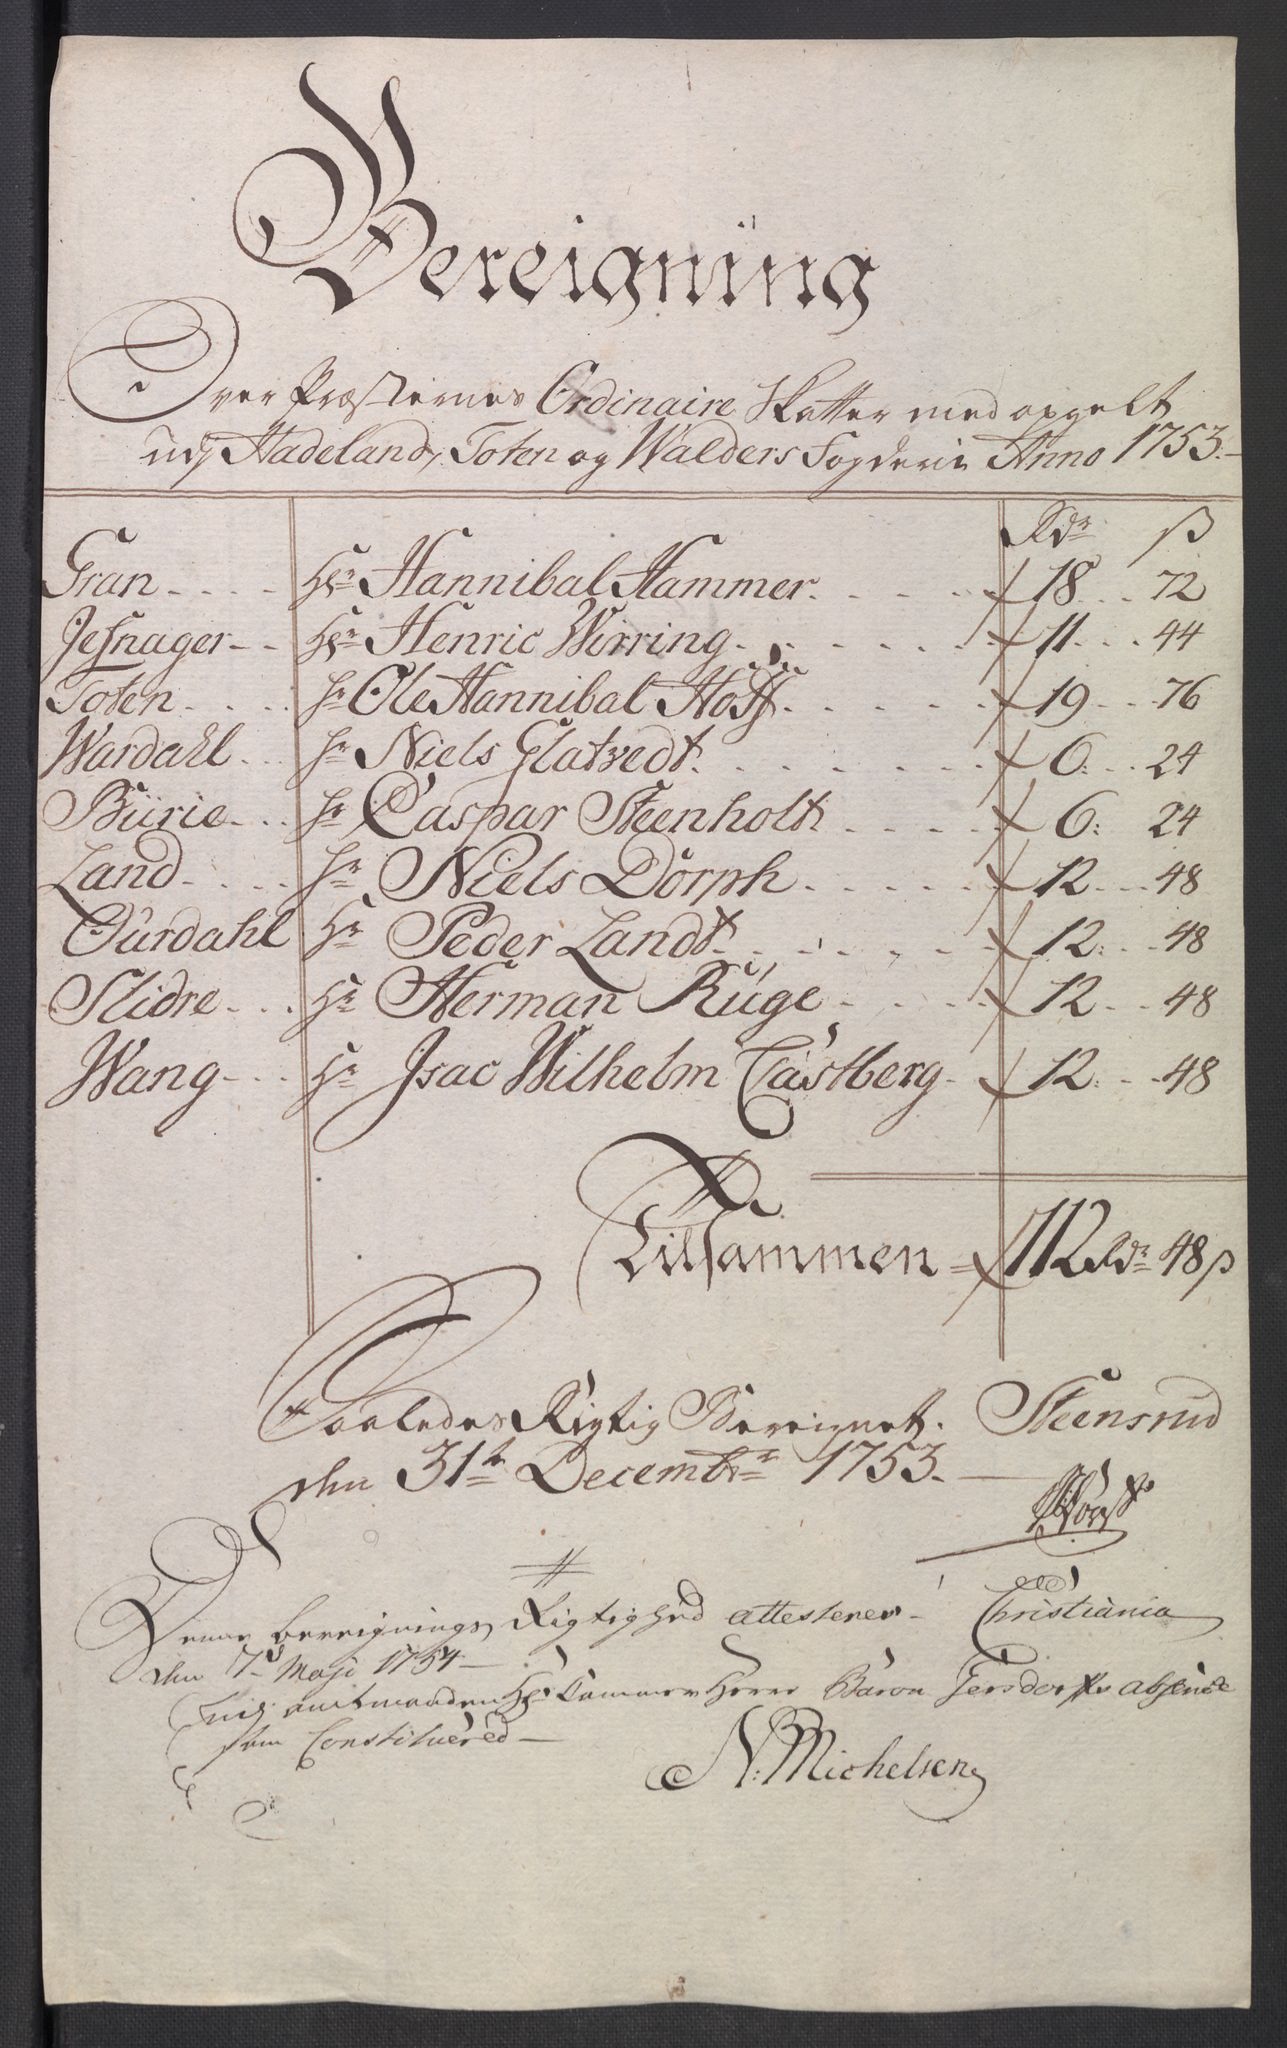 Bereigning
Over Præsternes Ordinaire Skatter med opgelt
udj Hadeland, Toten og Walders Fogderie Anno 1753.
Rdr ß
Gran Hr Hannibal Hammer 18 72
Jefsnager Hr Henric Wirring 11 44
Toten Hr Ole Hannibal Hoff 19 76
Wardahl Hr Niels Glatvedt 6 24
Bürie Hr Caspar Steenholt 6 24
Land Hr Niels Dorph 12 48
Ourdahl Hr Peder Landt 12 48
Slidre Hr Herman Rüge 12 48
Wang Hr Isac Wilhelm Castberg 12 48
Tilsammen 112 Rdr 48 ß
Saaledes Rigtig Bereignet. Steensrud
den 31te Decembr 1753.
Denne bereignings Rigtighed attesterer Christiania
den 7d Maji 1754
udj amtmanden Hr Cammer Herre Baron Gersdorffs absence
som Constituered
N: Michelsen